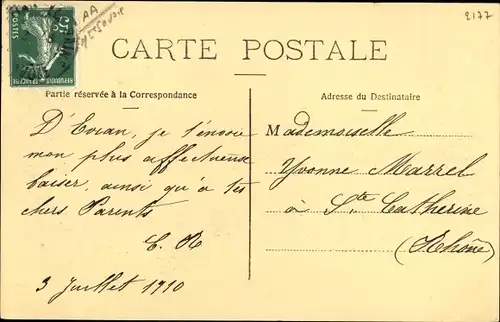 2177
AA
CARTE POSTALE
POSTES
Partie réservée à la Correspondance
Adresse du Destinataire
D'Evian, je t'envoie
mon plus affectueux
baiser, ainsi qu'à tes
chers Parents
E. R
3 Juillet 1910
Mademoiselle
Yvonne Marrel
à Ste Catherine
(Rhône)